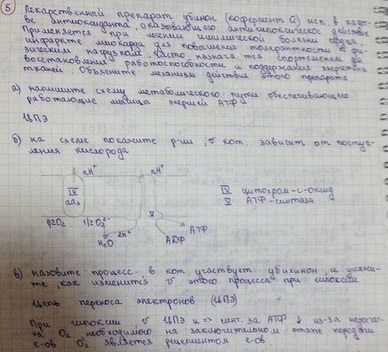 5 Лекарственный препарат убинон (кофермент Q) исп. в качес-
ве антиоксиданта, оказывающего антигипоксическое действие
Применяется при лечении ишемической болезни сердца,
инфаркте миокарда, для повышения толерантности к фи-
зическим нагрузкам. Часто назначается спортсменам для
восстановления работоспособности и поддержания энергетики
тканей. Объясните механизм действия этого препарата
а) напишите схему метаболического пути обеспечивающего
работающие мышцы энергией АТФ
ЦПЭ
б) на схеме покажите р-ции, v кот. зависит от поступ-
ления кислорода
nH⁺ nH⁺
IV
aa₃
IV цитохром-с-оксид
V АТФ-синтаза
1/2O₂ 1/2O₂²⁻ V
2H⁺ АТФ
H₂O АДФ
в) назовите процесс, в кот. участвует убихинон, и укажи-
те, как изменится v этого процесса при гипоксии
Цепь переноса электронов (ЦПЭ)
При гипоксии v ЦПЭ и => синт. АТФ ↓ из-за недоста-
на O₂ необходимого на заключительном этапе передачи
е-ов O₂ является рецептором е-ов